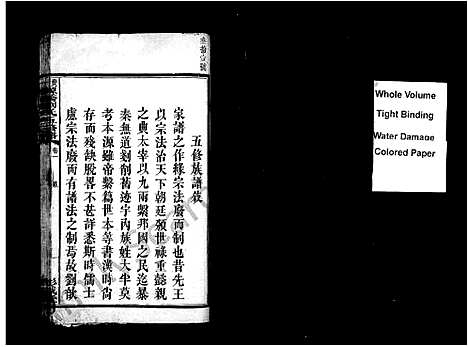 五修族譜敘
家譜之作緣宗法廢而制也昔先王
以宗法治天下朝廷頒世祿重懿親
之典太宰以九兩繫邦國之民迄暴
秦無道剗削舊迹宇內族姓大半莫
考本源雖帝繫篇世本等書漢時尚
存而殘缺脫畧不甚詳悉斯時儒士
慮宗法廢而有譜法之制焉故劉歆
Whole Volume
Tight Binding
Water Damage
Colored Paper